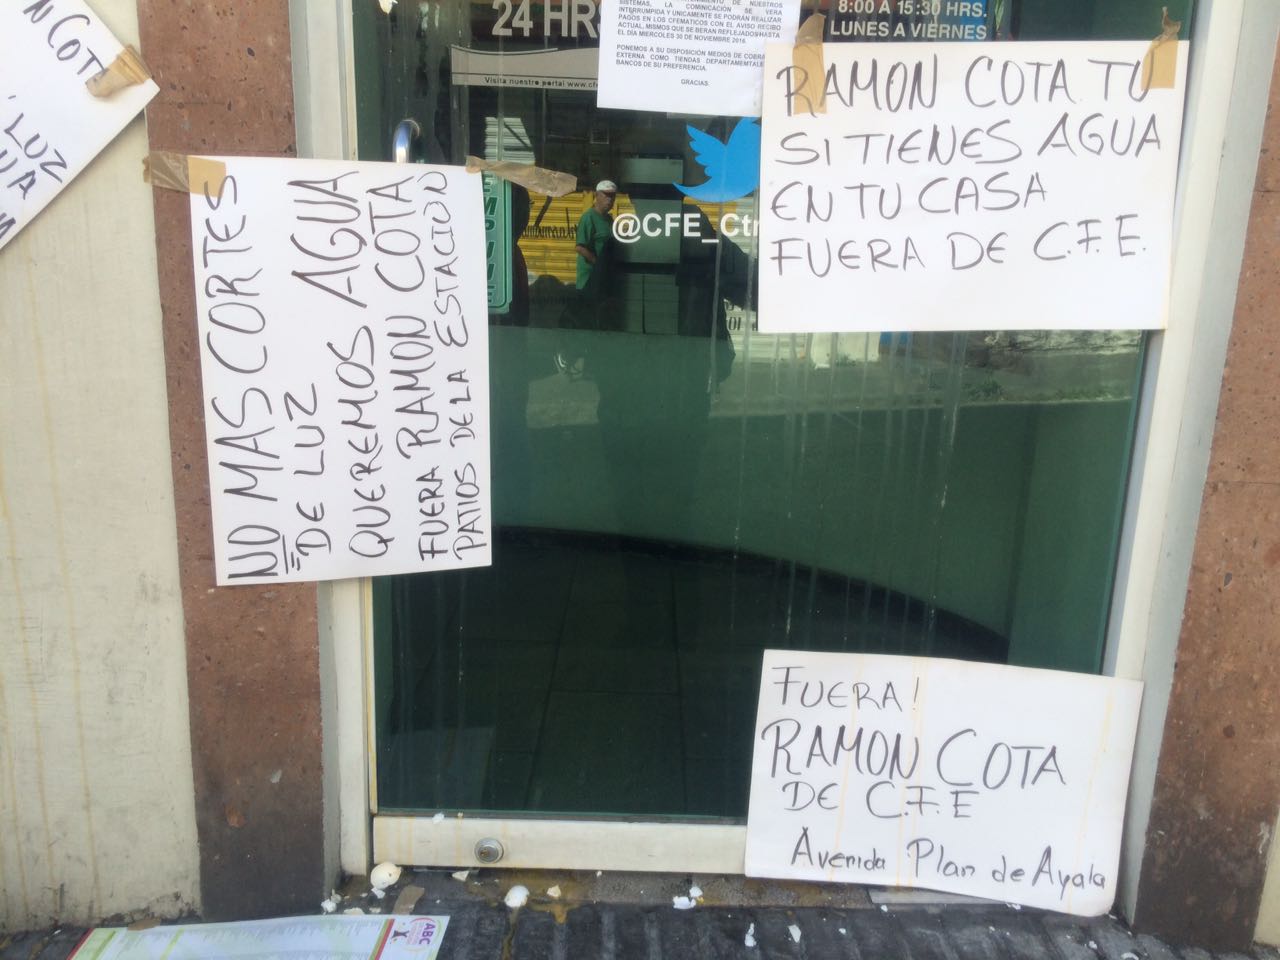 24 HRS
Visita nuestro portal www.cfe
SISTEMAS, LA COMINCACIÓN SE VERA
INTERRUMPIDA Y UNICAMENTE SE PODRAN REALIZAR
PAGOS EN LOS CFEMATICOS CON EL AVISO RECIBO
ACTUAL, MISMOS QUE SE BERAN REFLEJADOSHASTA
EL DÍA MIERCOLES 30 DE NOVIEMBRE 2016.
PONEMOS A SU DISPOSICIÓN MEDIOS DE COBRA
EXTERNA COMO TIENDAS DEPARTAMEMTALE
BANCOS DE SU PREFERENCIA.
GRACIAS.
8:00 A 15:30 HRS.
LUNES A VIERNES
@CFE_Ct
COT
LUZ
RAMON COTA TU
SI TIENES AGUA
EN TU CASA
FUERA DE C.F.E.
NO MAS CORTES
DE LUZ
QUEREMOS AGUA
FUERA RAMON COTA
PATIOS DE LA ESTACION
FUERA!
RAMON COTA
DE C.F.E
Avenida Plan de Ayala
ABC